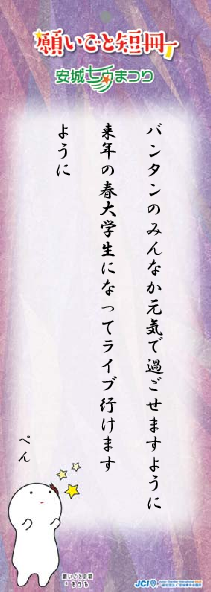 願いごと短冊
安城七夕まつり
バンタンのみんなか元気で過ごせますように
来年の春大学生になってライブ行けます
ように
ぺん
願いごと短冊
JCI